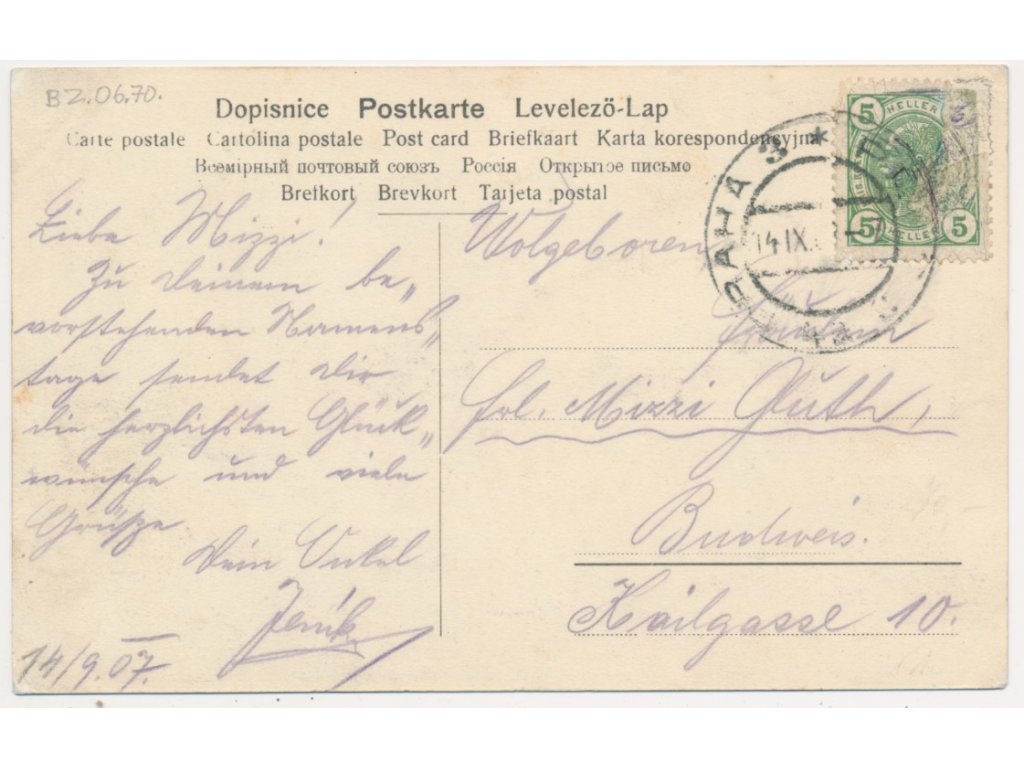 BZ.06.70.
Dopisnice Postkarte Levelező-Lap
Carte postale Cartolina postale Post card Briefkaart Karta korespondencyjna
Всемірный почтовый союзъ Россія Открытое письмо
Brefkort Brevkort Tarjeta postal
5 HELLER
5 HELLER 5
PRAHA 3 *
14 IX.
Liebe Mizzi!
Zu Deinem be„
vorstehenden Namens„
tage sendet Dir
die herzlichsten Glück„
wünsche und viele
Grüsze
Dein Onkel
Jeník
14/9.07.
Wolgeboren
Fräulein
Frl. Mizzi Guth,
Budweis.
Kailgasse 10.